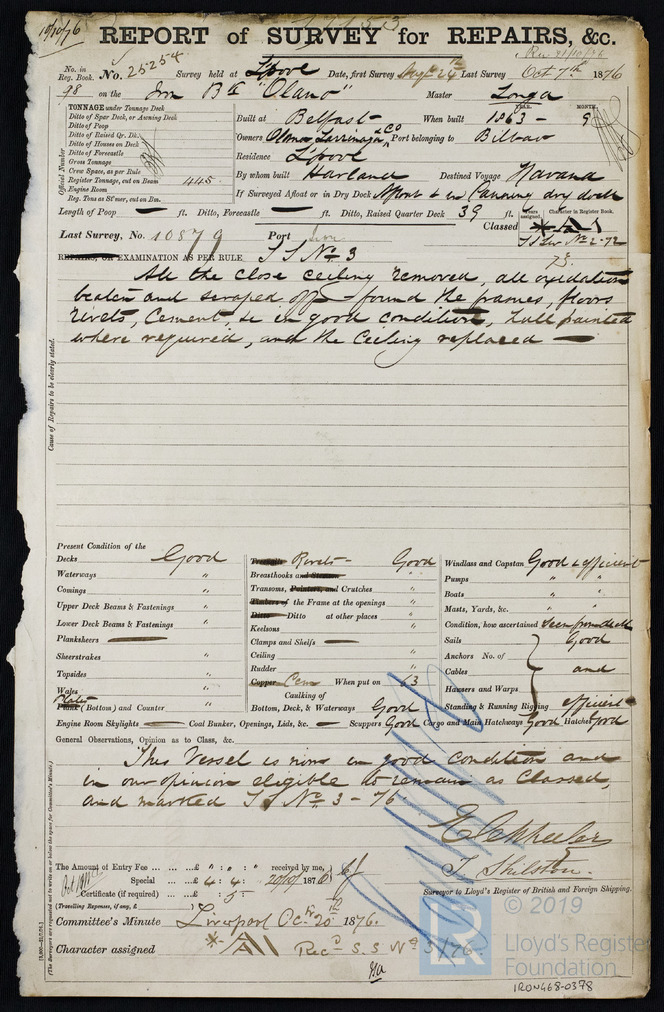 10/10/76
REPORT of SURVEY for REPAIRS, &c.
No. in Reg. Book. No. 25254 Survey held at Lpool Date, first Survey Aug 24th Last Survey Oct 7th 1876
98 on the Iron Bk "Olano" Master Longa
TONNAGE under Tonnage Deck
Ditto of Spar Deck, or Awning Deck
Ditto of Poop
Ditto of Raised Qr. Dk.
Ditto of Houses on Deck
Ditto of Forecastle
Gross Tonnage
Crew Space, as per Rule
Register Tonnage, cut on Beam 445
Engine Room
Reg. Tons as St'mer, cut on Bm.
Official Number
Built at Belfast When built YEAR. 1863 MONTH. 9
Owners Olano Larrinaga & Co Port belonging to Bilbao
Residence Lpool
By whom built Harland Destined Voyage Havana
If Surveyed Afloat or in Dry Dock Afloat & in Canning dry dock
Length of Poop — ft. Ditto, Forecastle — ft. Ditto, Raised Quarter Deck 39 ft.
Years assigned. Character in Register Book.
Classed A1
Last Survey, No. 10879 Port Liv
SS Liv No 2-72
REPAIRS, OR EXAMINATION AS PER RULE SS No 3
All the close ceiling removed, all oxidation
beaten and scraped off — found the frames, floors
rivets, Cement &c in good condition, hull painted
where required, and the Ceiling replaced —
Cause of Repairs to be clearly stated.
Present Condition of the
Decks Good
Waterways "
Comings "
Upper Deck Beams & Fastenings "
Lower Deck Beams & Fastenings "
Planksheers —
Sheerstrakes "
Topsides "
Wales "
Plates
Plank (Bottom) and Counter "
Treenails Rivets Good
Breasthooks and Stemson "
Transoms, Pointers, and Crutches "
Timbers of the Frame at the openings "
Ditto Ditto at other places "
Keelsons "
Clamps and Shelfs —
Ceiling "
Rudder "
Copper Cem When put on 63
Caulking of
Bottom, Deck, & Waterways Good
Windlass and Capstan Good & efficient
Pumps " "
Boats " "
Masts, Yards, &c. " "
Condition, how ascertained Seen from deck
Sails Good
Anchors No. of
Cables and
Hawsers and Warps
Standing & Running Rigging efficient
Engine Room Skylights — Coal Bunker, Openings, Lids, &c. — Scuppers Good Cargo and Main Hatchways Good Hatches Good
General Observations, Opinion as to Class, &c.
This Vessel is now in good condition and
in our opinion eligible to remain as Classed,
and marked SS No 3-76
The Amount of Entry Fee ... ... ...£ " : " : " received by me,
Special ... ...£ 4 : 4 : 20/10/ 1876
Certificate (if required) ... ...£ : 5
(Travelling Expenses, if any, £ )
T. Shilston
Surveyor to Lloyd's Register of British and Foreign Shipping.
Committee's Minute Liverpool Octr 20th 1876.
Character assigned A1 Recd S.S No 3/76
(The Surveyors are requested not to write on or below the space for Committee's Minute.)
© 2019
Lloyd's Register
Foundation
IRON468-0378